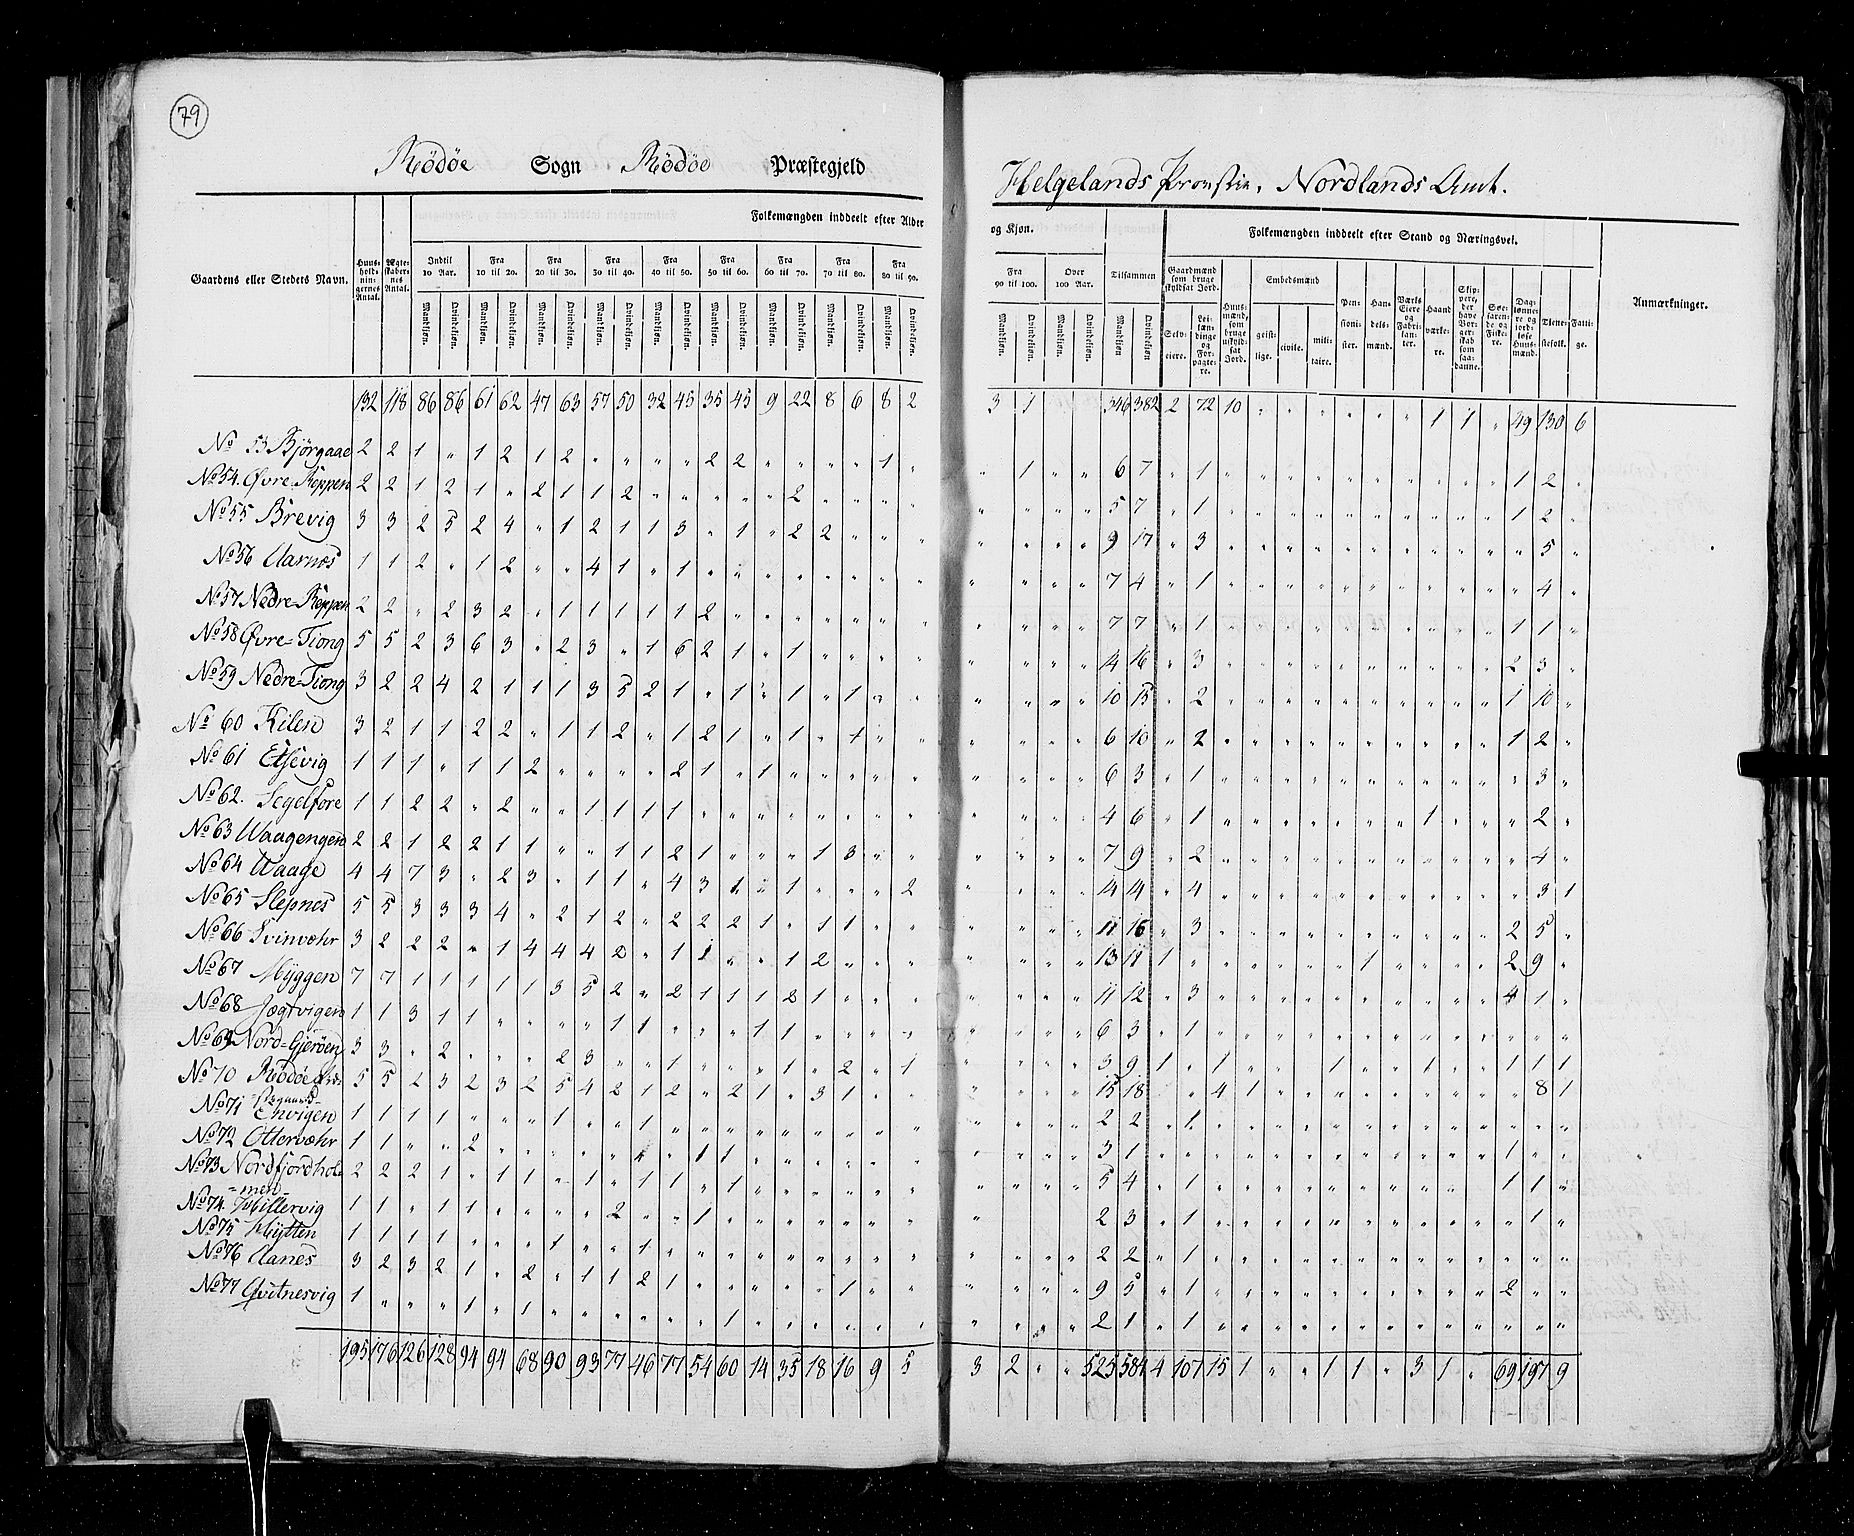 79
Rödöe Sogn Rödöe Præstegjeld
Helgelands Provstie, Nordlands Amt.
Gaardens eller Stedets Navn.
Huus-holdnin-gernes Antal.
Ægte-skaber-nes Antal.
Folkemængden inddeelt efter Alder og Kjøn.
Indtil 10 Aar. Fra 10 til 20. Fra 20 til 30. Fra 30 til 40. Fra 40 til 50. Fra 50 til 60. Fra 60 til 70. Fra 70 til 80. Fra 80 til 90.
Fra 90 til 100. Over 100 Aar. Tilsammen
Mandkjøn. Qvindekjøn.
Folkemængden inddeelt efter Stand og Næringsvei.
Gaardmænd som bruge skyldsat Jord.
Selv-eiere. Lei-læn-dinge og For-pagte-re.
Huus-mænd, som bruge uskyld-sat Jord.
Embedsmænd
geist-lige. civile. mili-taire.
Pen-sioni-ster. Han-dels-mænd. Værks Eiere og Fabri-kan-ter. Haand værke-re. Skip-pere, der have Bor-ger-skab som saa-danne. Søe-farende og Fiske-re. Dag-lønne-re og jord-løse Huus-mænd. Tjene-stefolk. Fatti-ge.
Anmærkninger.
132 118 86 86 61 62 47 63 57 50 32 45 35 45 9 22 8 6 8 2 3 1 346 382 2 72 10 " " " " " " 1 1 " 49 130 6
No 53 Bjørgaae 2 2 1 " 1 2 1 2 " " " " 2 2 " " " " 1 " " 1 " " 6 7 " 1 " " " " " " " " " " 1 2 "
No 54. Øvre-Reppen 2 2 1 2 1 " 2 1 1 2 " " " " " 2 " " " " " " " " 5 7 " 1 " " " " " " " " " " 1 2 "
No 55 Brevig 3 3 2 5 2 4 " 1 2 1 1 3 " 1 " 2 2 " " " " " " " 9 17 " 3 " " " " " " " " " " " 5 "
No 56 Aarnæs 1 1 2 " 1 2 " " 4 1 " 1 " " " " " " " " " " " " 7 4 " 1 " " " " " " " " " " " 4 "
No 57 Nedre-Reppen 2 2 " 2 3 2 " 1 1 1 1 1 2 " " " " " " " " " " " 7 7 " 1 " " " " " " " " " " 1 1 "
No 58 Øvre-Tiong 5 5 2 3 6 3 " 2 3 " 1 6 2 1 " 1 " " " " " " " " 14 16 " 3 " " " " " " " " " " 2 3 "
No 59 Nedre-Tiong 3 2 2 4 2 1 1 1 3 5 2 1 " 1 " 1 " 1 " " " " " " 10 15 " 2 " " " " " " " " " " 1 10 "
No 60 Kilen 3 2 1 1 2 2 " 1 1 2 " 1 2 1 " 1 " 1 " " " " " " 6 10 " 2 " " " " " " " " " " 1 2 "
No 61 Etsevig 1 1 1 " 1 1 2 " " " " 2 1 " 1 " " " " " " " " " 6 3 " 1 " " " " " " " " " " " 3 "
No 62. Segelfore 1 1 2 2 " 2 " " 1 1 1 1 " " " " " " " " " " " " 4 6 " 1 " " " " " " " 1 " " " 2 "
No 63 Waagengen 2 2 1 2 2 1 1 " " 1 1 2 1 " " " 1 3 " " " " " " 7 9 " 2 " " " " " " " " " " " 4 "
No 64 Waage 4 4 7 3 " 2 3 " 1 1 " 4 3 1 " 1 " " " 2 " " " " 14 14 " 4 " " " " " " " " " " " 3 1
No 65 Slepnes 5 5 3 3 3 4 " 2 1 2 " 2 2 2 1 " 1 1 " " " " " " 11 16 " 3 " " " " " " " " " " 2 5 "
No 66 Svinvæhr 3 2 2 2 " 1 4 4 4 2 " 1 1 " " 1 2 " " " " " " " 13 11 1 " " " " " " 1 " " " " 2 9 "
No 67 Myggen 7 7 1 1 1 1 1 3 5 2 " 2 1 1 1 2 1 " " " " " " " 11 12 " 3 " " " " " " " " " " 4 1 "
No 68 Jægtvigen 1 1 3 1 1 " " " " 1 1 " " " 1 1 " " " " " " " " 6 3 " 1 " " " " " " " " " " " " "
No 69 Nord-Gjerøen 3 3 " 2 " " " 2 3 " " 1 " " " 1 " 2 " 1 " " " " 3 9 1 " 1 " " " 1 " " 1 " " 1 1 1
No 70 Rödöe Præstegaard 5 5 2 3 2 3 2 5 4 2 1 2 " 2 1 " 3 1 " " " " " " 15 18 " " 4 1 " " " " " " " " " 8 1
No 71 Envigen 1 1 1 1 " " " 1 " 1 " 1 " " " " " " " " " " " " 2 2 " 1 " " " " " " " " " " " " "
No 72 Ottervæhr 1 1 " " 2 " " " " " " " 1 1 " " " " " " " " " " 3 1 " " " " " " " " " " " " 1 " "
No 73 Nordfjordhol-men 2 2 2 1 " 1 1 " 1 " 1 1 " 1 " " " " " " " " " " 5 4 " 1 " " " " " " " " " " 1 1 "
No 74. Hillervig 1 1 " 1 1 " " " " 2 " " 1 " " " " " " " " " " " 2 3 " 1 " " " " " " " " " " " 1 "
No 75 Hytten 1 1 1 1 " " " 1 " " 1 " " " " " " " " " " " " " 2 2 " 1 " " " " " " " " " " " " "
No 76 Aanes 3 2 3 2 1 " 2 " 1 1 2 1 " " " " " 1 " " " " " " 9 5 " 1 " " " " " " " " " " 2 " "
No 77 Qvitnesvig 1 " " " 1 " 1 " " " " " " 1 " " " " " " " " " " 2 1 " 1 " " " " " " " " " " " " "
195 176 126 128 94 94 68 90 93 77 46 77 54 60 14 35 18 16 9 5 3 2 " " 525 584 4 107 15 1 " " 1 1 " 3 1 " 69 197 9